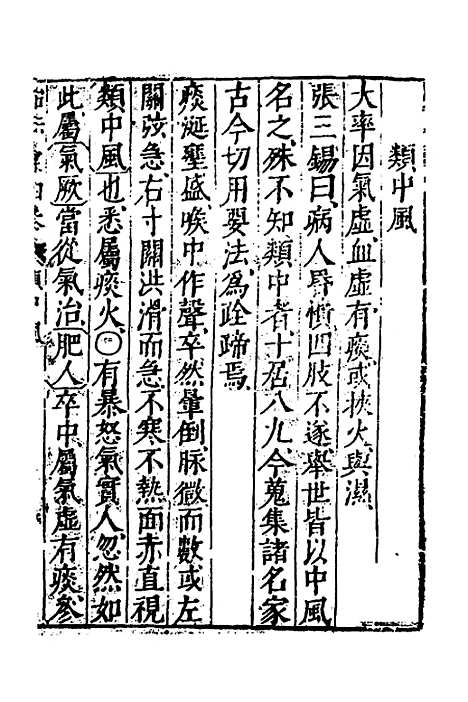 類中風
大率因氣虛血虛有痰或挾火與濕
張三錫曰病人昏憒四肢不遂舉世皆以中風
名之殊不知類中者十居八九今蒐集諸名家
古今切用要法為詮蹄焉
痰涎壅盛喉中作聲卒然暈倒脉微而數或左
關弦急右寸關洪滑而急不寒不熱面赤直視
類中風也悉屬痰火〇有暴怒氣實人忽然如
此屬氣厥當從氣治肥人卒中屬氣虛有痰參